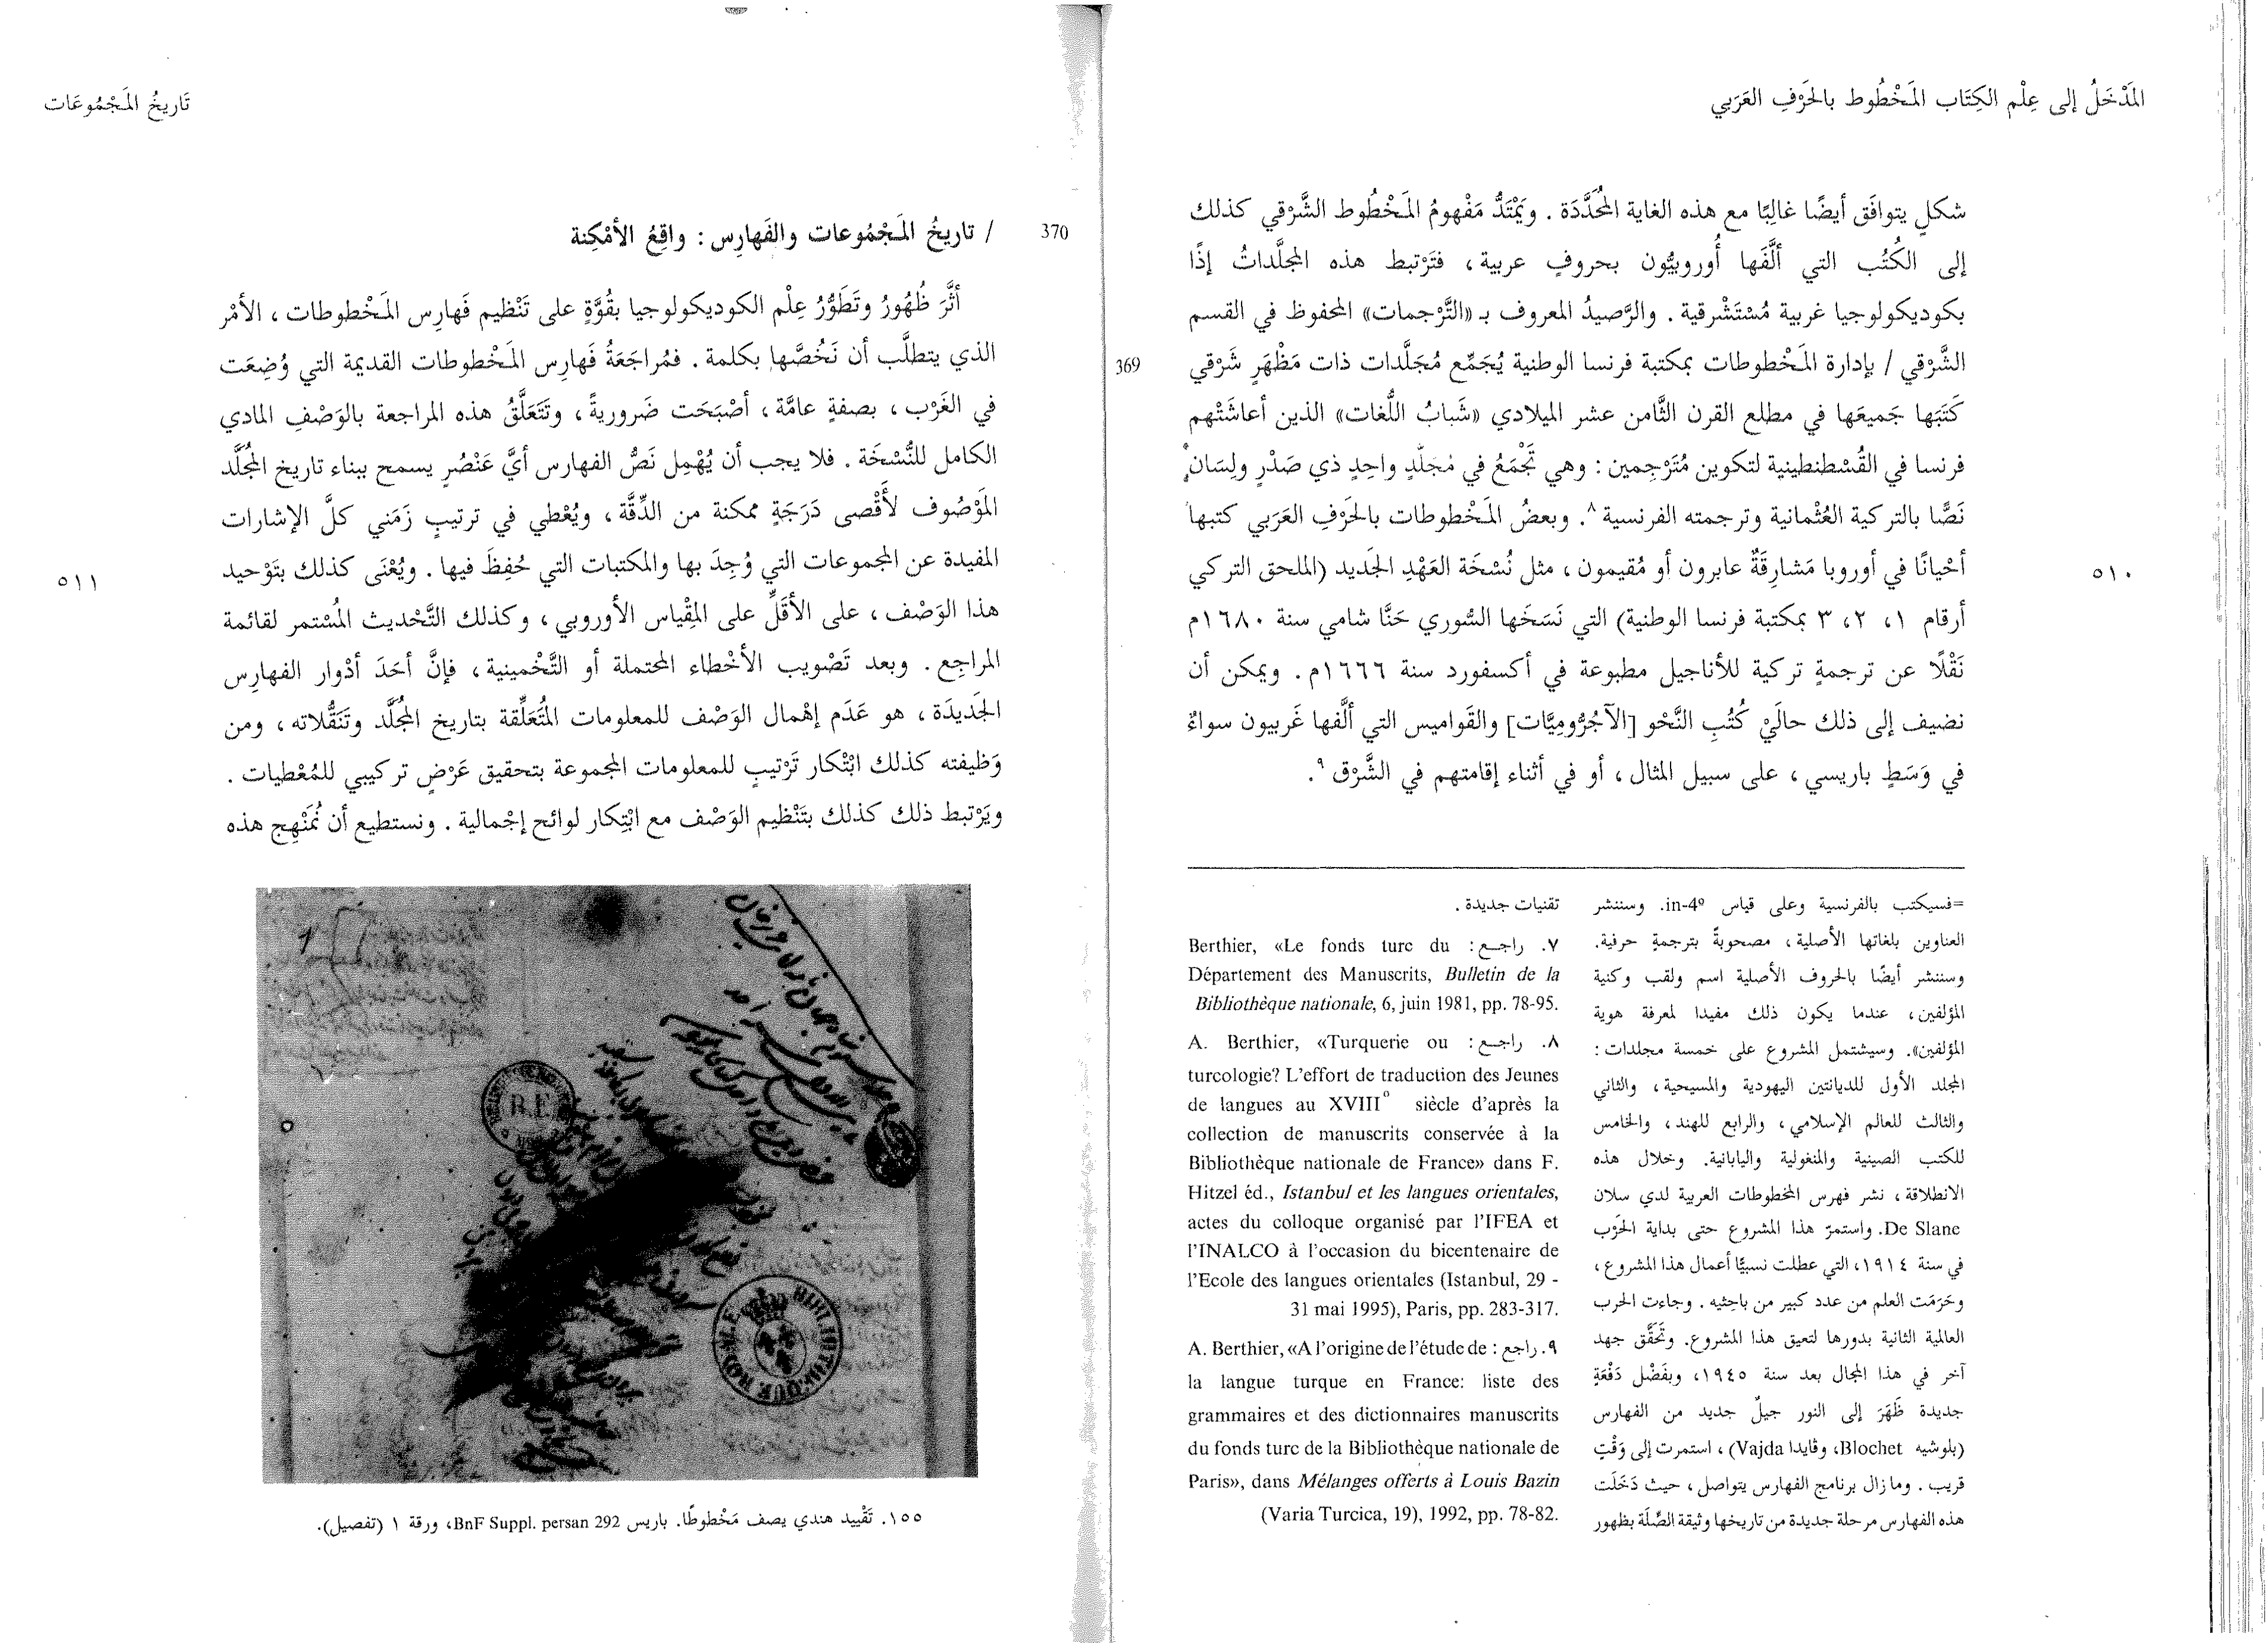 المَدْخَلُ إلى عِلْم الكِتَاب المَخْطُوط بالحَرْفِ العَرَبي
شكلٍ يتوافَق أيضًا غالِبًا مع هذه الغاية المُحَدَّدَة . ويَمْتَدُّ مَفْهومُ المَخْطُوط الشَّرْقي كذلك
إلى الكُتُب التي ألَّفَها أُوروبيُّون بحروفٍ عربية ، فتَرْتبط هذه المجلَّداتُ إذًا
بكوديكولوجيا غربية مُسْتَشْرقية . والرَّصيدُ المعروف بـ «التَّرْجمات» المحفوظ في القسم
الشَّرْقي / بإدارة المَخْطوطات بمكتبة فرنسا الوطنية يُجَمِّع مُجَلَّدات ذات مَظْهَرٍ شَرْقي
369
كَتَبَها جَميعَها في مطلع القرن الثَّامن عشر الميلادي «شَبابُ اللُّغات» الذين أعاشَتْهم
فرنسا في القُسْطنطينية لتكوين مُتَرْجِمين : وهي تَجْمَعُ في مُجلَّدٍ واحِدٍ ذي صَدْرٍ ولِسَانٍ
نَصًّا بالتركية العُثْمانية وترجمته الفرنسية ٨. وبعضُ المَخْطوطات بالحَرْفِ العَرَبي كتبها
أحْيانًا في أوروبا مَشارِقَةٌ عابرون أو مُقيمون ، مثل نُسْخَة العَهْدِ الجَديد (الملحق التركي
٥١٠
أرقام ١، ٢، ٣ بمكتبة فرنسا الوطنية) التي نَسَخَها السُّوري حَنَّا شامي سنة ١٦٨٠م
نَقْلًا عن ترجمةٍ تركية للأناجيل مطبوعة في أكسفورد سنة ١٦٦٦م . ويمكن أن
نضيف إلى ذلك حالَيْ كُتُبِ النَّحْو [الآجُرُّومِيَّات] والقَواميس التي ألَّفها غَربيون سواءٌ
في وَسَطٍ باريسي ، على سبيل المثال ، أو في أثناء إقامتهم في الشَّرْق ٩.
=فسيكتب بالفرنسية وعلى قياس in-4º. وسننشر
العناوين بلغاتها الأصلية ، مصحوبةً بترجمةٍ حرفية.
وسننشر أيضًا بالحروف الأصلية اسم ولقب وكنية
المؤلفين، عندما يكون ذلك مفيدا لمعرفة هوية
المؤلفين». وسيشتمل المشروع على خمسة مجلدات :
المجلد الأول للديانتين اليهودية والمسيحية ، والثاني
والثالث للعالم الإسلامي ، والرابع للهند ، والخامس
للكتب الصينية والمنغولية واليابانية. وخلال هذه
الانطلاقة ، نشر فهرس المخطوطات العربية لدي سلان
De Slane. واستمرّ هذا المشروع حتى بداية الحَرْب
في سنة ١٩١٤، التي عطلت نسبيًّا أعمال هذا المشروع ،
وحَرَمَت العلم من عدد كبير من باحِثيه . وجاءت الحرب
العالمية الثانية بدورها لتعيق هذا المشروع. وتَحَقَّق جهد
آخر في هذا المجال بعد سنة ١٩٤٥، وبفَضْل دَفْعَةٍ
جديدة ظَهَرَ إلى النور جيلٌ جديد من الفهارس
(بلوشيه Blochet، وڤايدا Vajda) ، استمرت إلى وَقْتٍ
قريب . ومازال برنامج الفهارس يتواصل ، حيث دَخَلَت
هذه الفهارس مرحلة جديدة من تاريخها وثيقة الصِّلَة بظهور
تقنيات جديدة .
٧. راجـع : Berthier, «Le fonds turc du
Département des Manuscrits, Bulletin de la
Bibliothèque nationale, 6, juin 1981, pp. 78-95.
٨. راجـع : A. Berthier, «Turquerie ou
turcologie? L'effort de traduction des Jeunes
de langues au XVIIIº siècle d'après la
collection de manuscrits conservée à la
Bibliothèque nationale de France» dans F.
Hitzel éd., Istanbul et les langues orientales,
actes du colloque organisé par l'IFEA et
l'INALCO à l'occasion du bicentenaire de
l'Ecole des langues orientales (Istanbul, 29 -
31 mai 1995), Paris, pp. 283-317.
٩. راجع : A. Berthier, «A l'origine de l'étude de
la langue turque en France: liste des
grammaires et des dictionnaires manuscrits
du fonds turc de la Bibliothèque nationale de
Paris», dans Mélanges offerts à Louis Bazin
(Varia Turcica, 19), 1992, pp. 78-82.
تَاريخُ المَجْمُوعَات
370
/ تاريخُ المَجْمُوعات والفَهارِس : واقِعُ الأمْكِنة
أثَّرَ ظُهُورُ وتَطَوُّرُ عِلْم الكوديكولوجيا بقُوَّةٍ على تَنْظيم فَهارِس المَخْطوطات ، الأمْر
الذي يتطلَّب أن نَخُصَّها بكلمة . فمُراجَعَةُ فَهارِس المَخْطوطات القديمة التي وُضِعَت
في الغَرْب ، بصفةٍ عامَّة ، أصْبَحَت ضَروريةً ، وتَتَعَلَّقُ هذه المراجعة بالوَصْفِ المادي
الكامل للنُّسْخَة . فلا يجب أن يُهْمِل نَصُّ الفهارس أيَّ عَنْصُرٍ يسمح ببناء تاريخ المُجَلَّد
المَوْصُوف لأَقْصى دَرَجَةٍ ممكنة من الدِّقَّة ، ويُعْطي في ترتيبٍ زَمَني كلَّ الإشارات
المفيدة عن المجموعات التي وُجِدَ بها والمكتبات التي حُفِظَ فيها . ويُعْنَى كذلك بتَوْحيد
٥١١
هذا الوَصْف ، على الأقَلِّ على المِقْياس الأوروبي ، وكذلك التَّحْديث المُسْتمر لقائمة
المراجِع . وبعد تَصْويب الأخْطاء المحتملة أو التَّخْمينية ، فإنَّ أحَدَ أدْوار الفهارِس
الجَديدَة ، هو عَدَم إهْمال الوَصْف للمعلومات المُتَعَلِّقة بتاريخ المُجَلَّد وتَنَقُّلاته ، ومن
وَظيفته كذلك ابْتْكار تَرْتيبٍ للمعلومات المجموعة بتحقيق عَرْضٍ تركيبي للمُعْطيات .
ويَرْتبط ذلك كذلك بتَنْظيم الوَصْف مع ابْتِكار لوائح إجْمالية . ونستطيع أن نُمَنْهِج هذه
B.F.
BIBLIOTHEQUE ROYALE
١٥٥. تَقْييد هندي يصف مَخْطوطًا. باريس BnF Suppl. persan 292، ورقة ١ (تفصيل).